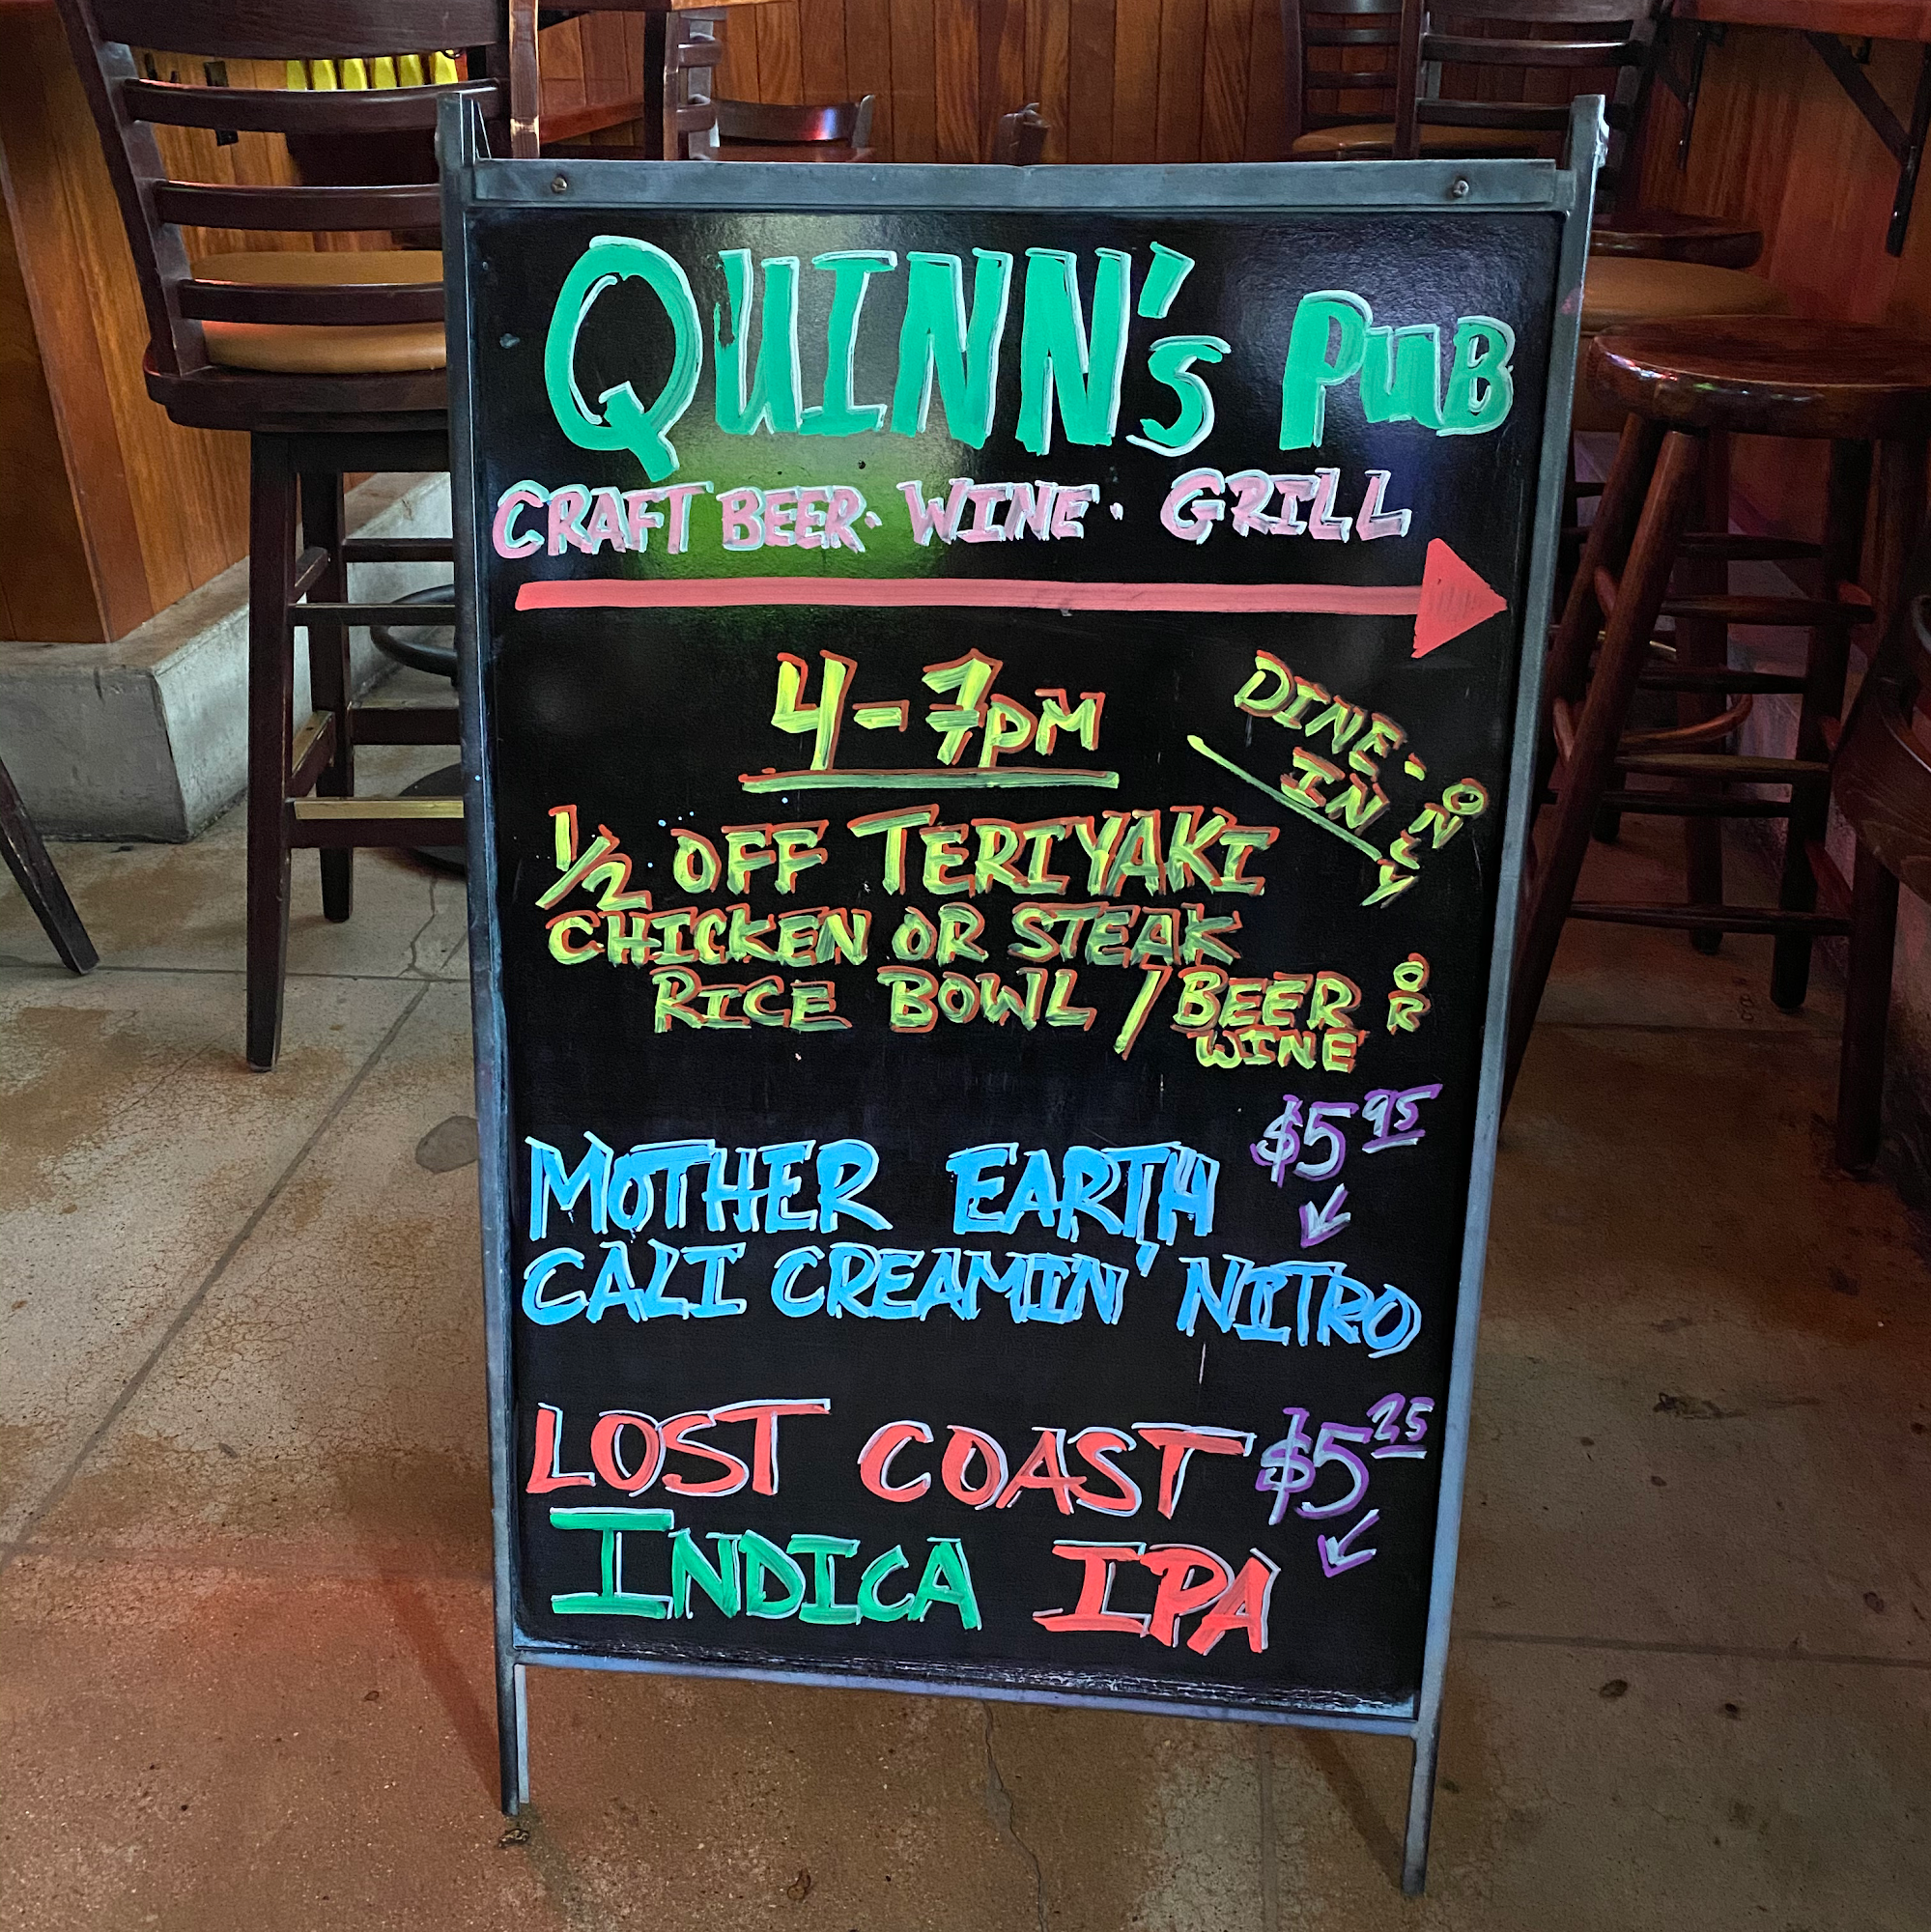 QUINN's PUB
CRAFT BEER · WINE · GRILL
4-7PM
DINE-
IN
ONLY
1/2 OFF TERIYAKI
CHICKEN OR STEAK
RICE BOWL / BEER OR
WINE
$5 95
MOTHER EARTH
CALI CREAMIN' NITRO
LOST COAST $5 25
INDICA IPA